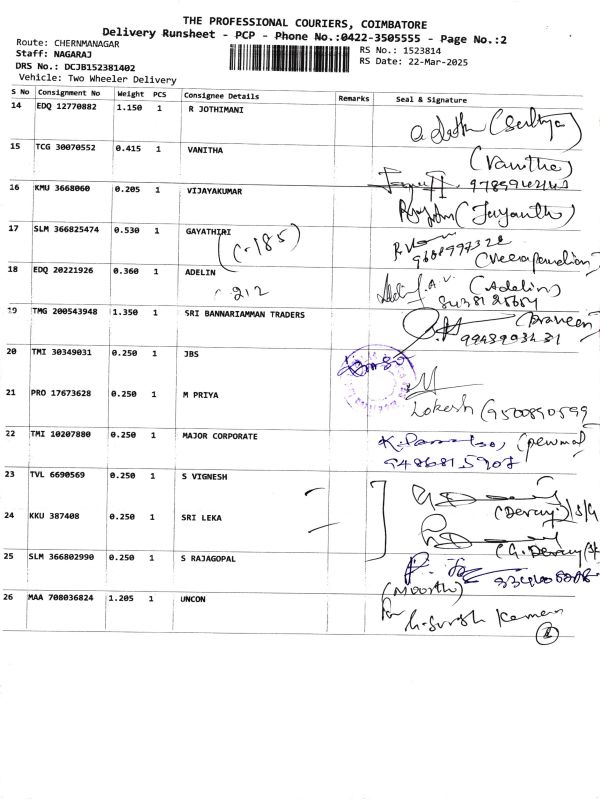 THE PROFESSIONAL COURIERS, COIMBATORE
Delivery Runsheet - PCP - Phone No.:0422-3505555 - Page No.:2
Route: CHERNMANAGAR
Staff: NAGARAJ
RS No.: 1523814
DRS No.: DCJB152381402
RS Date: 22-Mar-2025
Vehicle: Two Wheeler Delivery
S No Consignment No Weight PCS Consignee Details Remarks Seal & Signature
14 EDQ 12770882 1.150 1 R JOTHIMANI
15 TCG 30070552 0.415 1 VANITHA (Vanitha)
16 KMU 3668060 0.205 1 VIJAYAKUMAR (Jayanth)
17 SLM 366825474 0.530 1 GAYATHIRI (C-185)
(Veerapandian)
18 EDQ 20221926 0.360 1 ADELIN (Adelin)
212
19 TMG 200543948 1.350 1 SRI BANNARIAMMAN TRADERS (Praveen)
20 TMI 30349031 0.250 1 JBS
21 PRO 17673628 0.250 1 M PRIYA
Lokesh (9500890599
22 TMI 10207880 0.250 1 MAJOR CORPORATE
9486815907
23 TVL 6690569 0.250 1 S VIGNESH
(Devaraj)
24 KKU 387408 0.250 1 SRI LEKA
25 SLM 366802990 0.250 1 S RAJAGOPAL
(Moorthi)
26 MAA 708036824 1.205 1 UNCON